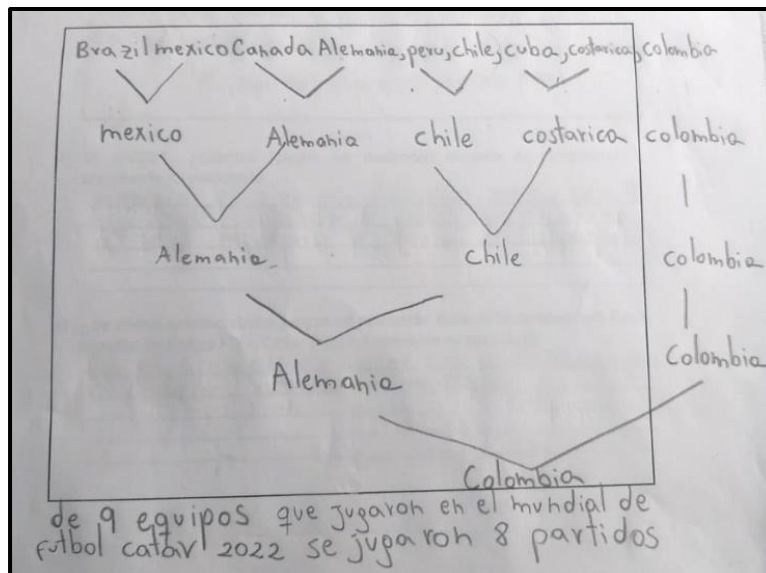 Brazil mexico Canada Alemania, peru, chile, cuba, costarica, colombia
mexico Alemania chile costarica colombia
Alemania chile colombia
Alemania Colombia
Colombia
de 9 equipos que jugaron en el mundial de
futbol catar 2022 se jugaron 8 partidos